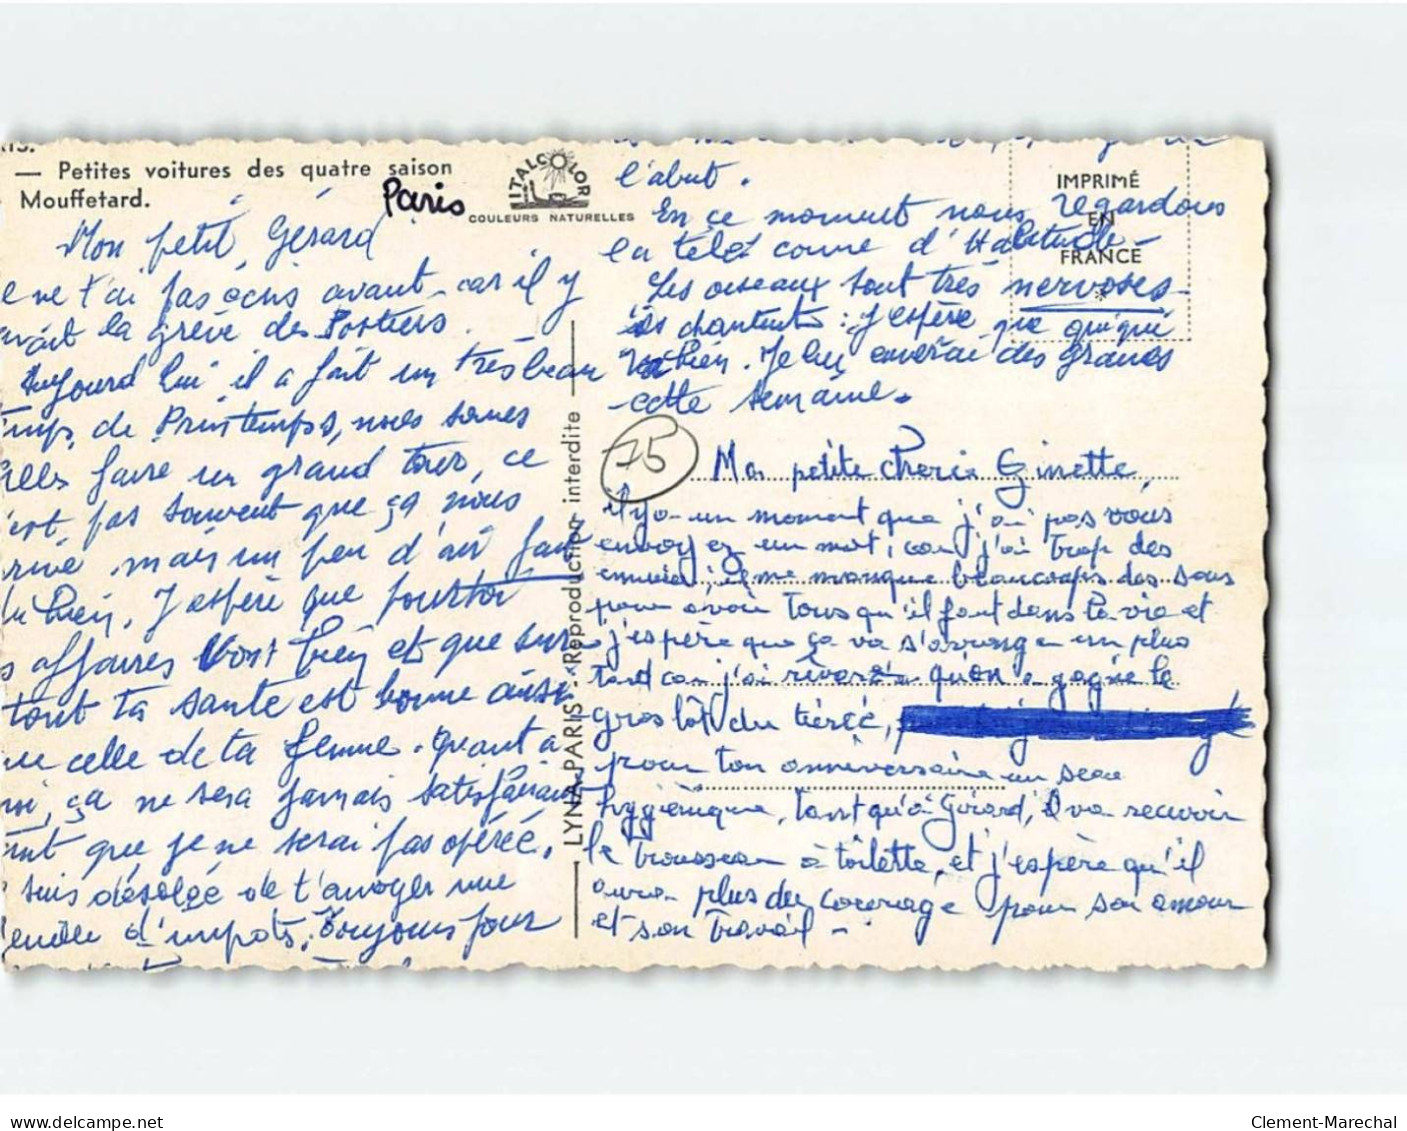 — Petites voitures des quatre saison
Mouffetard.
Paris
ITALCOLOR
COULEURS NATURELLES
Mon petit Gérard
e ne t'ai pas écris avant car il y
avait la grève des Postiers.
Aujourd hui il a fait un très beau
temps de Printemps, nous somes
allés faire un grand tour, ce
n'est pas souvent que ça nous
arrive mais un peu d'air fait
du bien, J'espère que pour toi
s affaires vont bien et que sur
tout ta santé est bonne aussi
que celle de ta femme. Quant à
moi, ça ne sera jamais satisfaisant
tant que je ne serai pas opérée.
suis désolée de t'envoyer une
feuille d'impots, Toujours pour
LYNA-PARIS - "Reproduction interdite"
IMPRIMÉ
EN
FRANCE
*
l'abut.
En ce moment nous regardons
la télé comme d'Habitude -
Les oiseaux sont très nervoses
ils chantent : J'espère que quiqui
va bien. Je lui enverai des graines
cette semaine.
75
Ma petite cherie Ginette,
il y a un moment que j'ai pas vous
envoyez un mot, car j'ai trop des
ennuis : il me manque beaucoups des sous
pour avoir tous qu'il faut dans la vie et
j'espère que ça va s'arrange un plus
tard car j'ai rêver qu'on a gagné le
gros lot du tiércé,
pour ton anniversaire un seau
hygiènique, tant qu'à Gérard, il va recevoir
le trousseau à toilette, et j'espère qu'il
aura plus du courage pour son amour
et son travail -
Clement-Marechal
www.delcampe.net